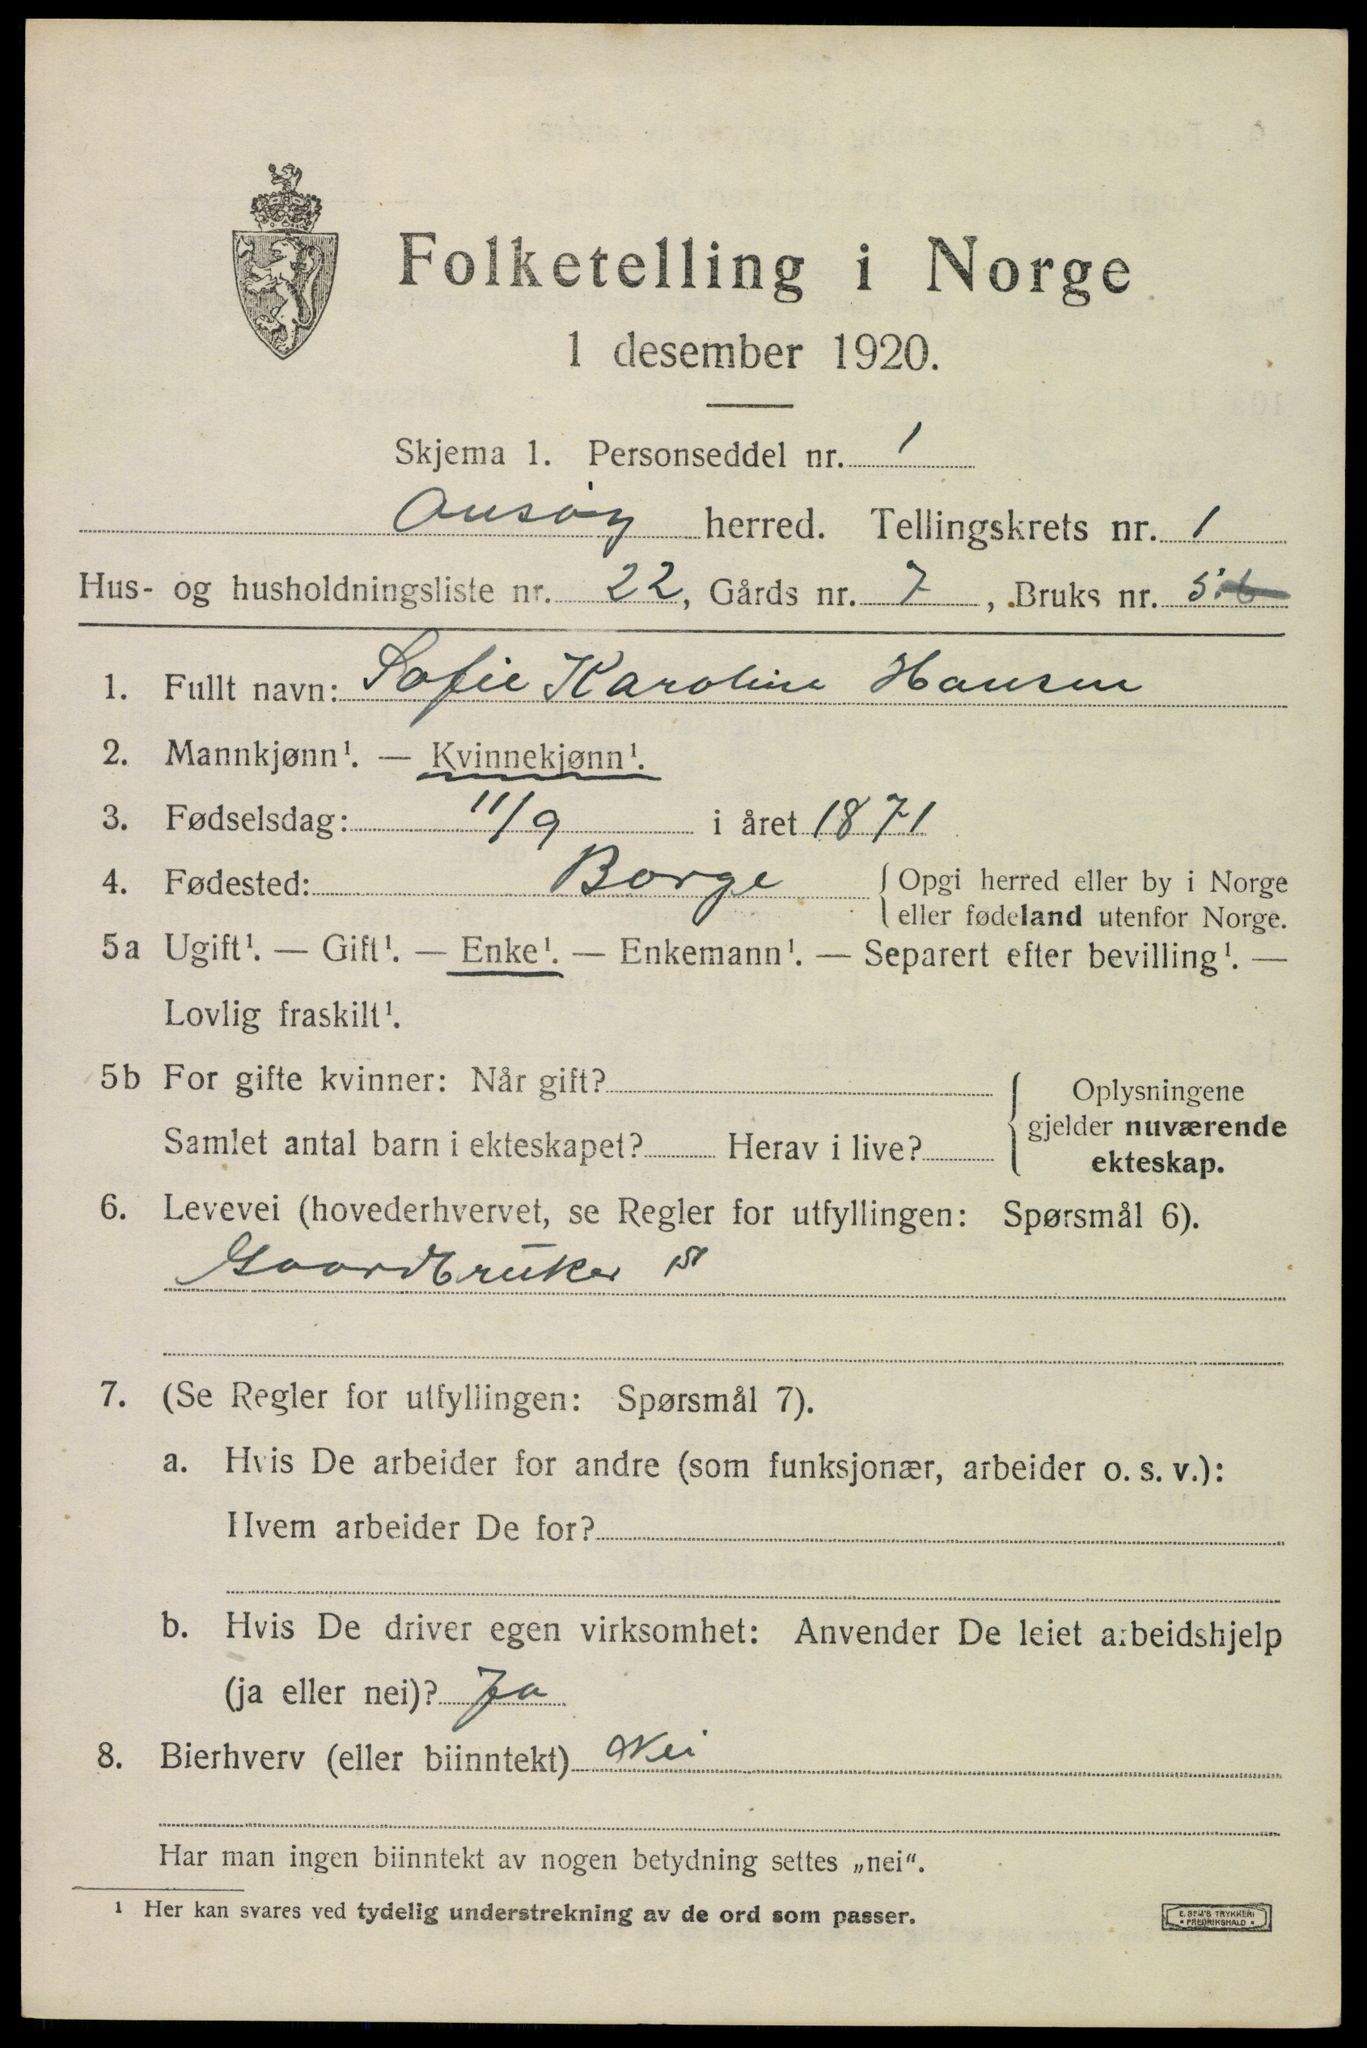 Folketelling i Norge
1 desember 1920.
Skjema 1. Personseddel nr. 1
Onsøy herred. Tellingskrets nr. 1
Hus- og husholdningsliste nr. 22, Gårds nr. 7, Bruks nr. 5
1. Fullt navn: Sofie Karoline Hansen
2. Mannkjønn¹. — Kvinnekjønn¹.
3. Fødselsdag: 11/9 i året 1871
4. Fødested: Borge { Opgi herred eller by i Norge
eller fødeland utenfor Norge.
5a Ugift¹. — Gift¹. — Enke¹. — Enkemann¹. — Separert efter bevilling¹. —
Lovlig fraskilt¹.
5b For gifte kvinner: Når gift?
Samlet antal barn i ekteskapet? Herav i live?
Oplysningene
gjelder nuværende
ekteskap.
6. Levevei (hovederhvervet, se Regler for utfyllingen: Spørsmål 6).
Gaardbruker
7. (Se Regler for utfyllingen: Spørsmål 7).
a. Hvis De arbeider for andre (som funksjonær, arbeider o. s. v.):
Hvem arbeider De for?
b. Hvis De driver egen virksomhet: Anvender De leiet arbeidshjelp
(ja eller nei)? Ja
8. Bierhverv (eller biinntekt) Nei
Har man ingen biinntekt av nogen betydning settes „nei“.
¹ Her kan svares ved tydelig understrekning av de ord som passer.
E. SEM'S TRYKKERI
• FREDRIKSHALD •